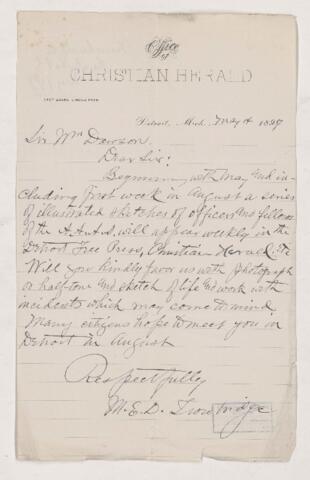 Office
of
CHRISTIAN HERALD
Detroit, Mich. May 4 1897
Sir Wm Dawson.
Dear Sir:
Beginning with May and in-
cluding first week in August a series
of illustrated sketches of officers and fellows
of the A.A.A.S. will appear weekly in the
Detroit Free Press, Christian Herald. Etc
Will you kindly favor us with photograph
or half-tone and sketch of life and work with
incidents which may come to mind.
Many citizens hope to meet you in
Detroit in August
Respectfully
M.E.D. Trowbridge